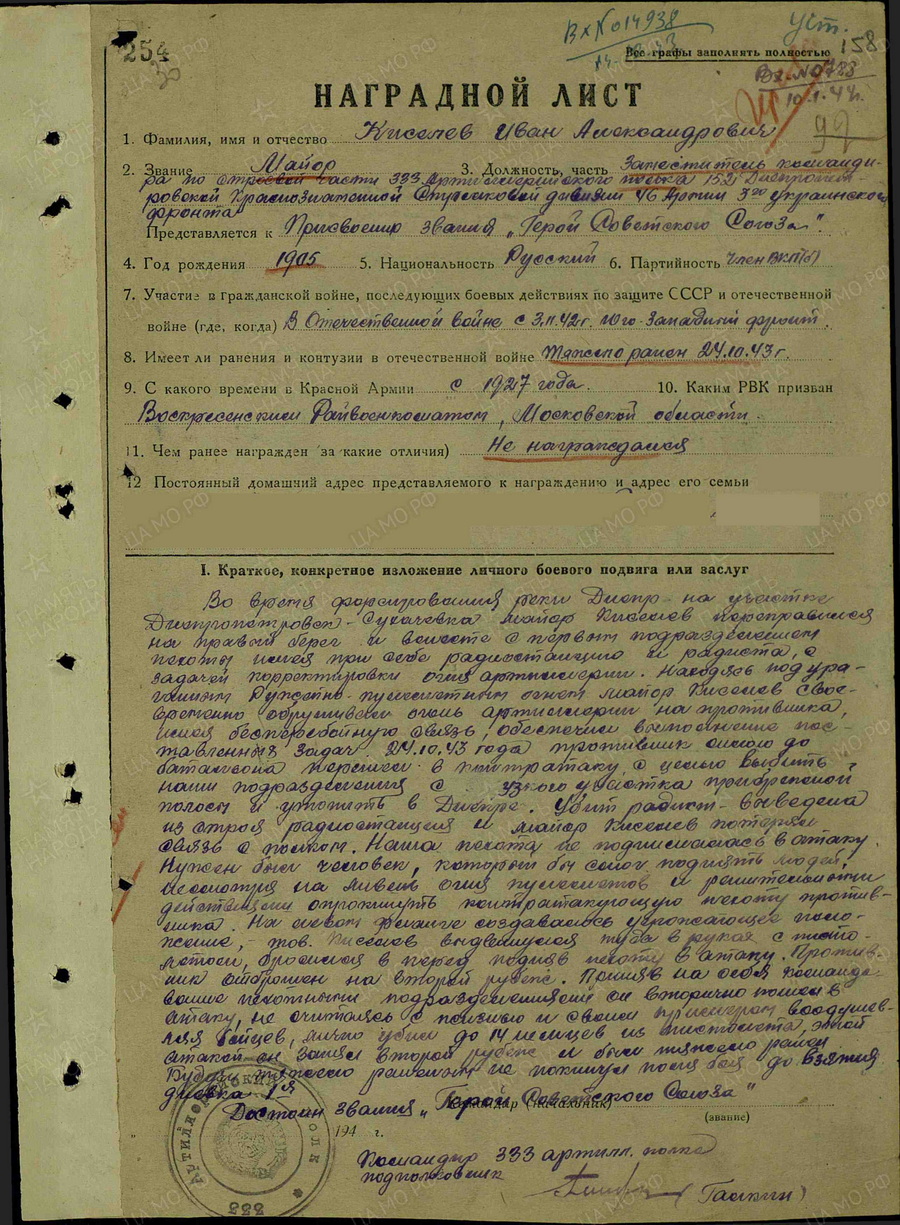 Вх №014938
Уст.
254
30
Все графы заполнять полностью
158
Вх. №0788
10.1.44г.
НАГРАДНОЙ ЛИСТ
97
1. Фамилия, имя и отчество Киселев Иван Александрович
2. Звание Майор 3. Должность, часть Заместитель команди-
ра по строевой части 333 Артиллерийского полка 152 Днепропет-
ровской Краснознаменной Стрелковой дивизии 46 Армии 3го Украинского
фронта
Представляется к Присвоению звания „Герой Советского Союза".
4. Год рождения 1905 5. Национальность Русский 6. Партийность член ВКП(б)
7. Участие в гражданской войне, последующих боевых действиях по защите СССР и отечественной
войне (где, когда) В Отечественной войне с 3.11.42г. Юго-Западный фронт.
8. Имеет ли ранения и контузии в отечественной войне Тяжело ранен 24.10.43г.
9. С какого времени в Красной Армии с 1927 года. 10. Каким РВК призван
Воскресенским Райвоенкоматом, Московской области.
11. Чем ранее награжден за какие отличия) Не награждался
12 Постоянный домашний адрес представляемого к награждению и адрес его семьи
I. Краткое, конкретное изложение личного боевого подвига или заслуг
Во время форсирования реки Днепр на участке
Днепропетровск-Сухачевка майор Киселев переправился
на правый берег и вместе с первым подразделением
пехоты имея при себе радиостанцию и радиста, с
задачей корректировки огня артиллерии. Находясь под ура-
ганным Ружейно-пулеметным огнем майор Киселев свое-
временно обрушивал огонь артиллерии на противника,
имея бесперебойную связь, обеспечил выполнение пос-
тавленных задач. 24.10.43 года противник силою до
батальона перешел в контратаку с целью выбить
наши подразделения с узкого участка прибрежной
полосы и утопить в Днепре. Убит радист - выведена
из строя радиостанция и майор Киселев потерял
связь с полком. Наша пехота не поднималась в атаку.
Нужен был человек, который бы смог поднять людей,
несмотря на ливень огня пулеметов и решительными
действиями опрокинуть контратакующую пехоту против-
ника. На левом фланге создавалось угрожающее поло-
жение, - тов. Киселев выдвинулся туда в руках с писто-
летом, бросился в перед подняв пехоту в атаку. Против-
ник отброшен на второй рубеж. Приняв на себя командо-
вание пехотными подразделениями он вторично пошел в
атаку, не считаясь с жизнью и своим примером воодушев-
ляя бойцов, лично убил до 14 немцев из пистолета, этой
атакой он занял второй рубеж и был тяжело ранен
Будучи тяжело раненым не покинул поля боя до взятия
Достоин звания „Герой Советского Союза"
Командир (начальник)
(звание)
194 г.
АРТИЛЛЕРИЙСКИЙ ПОЛК
333
Командир 333 артилл. полка
подполковник
(Галкин)